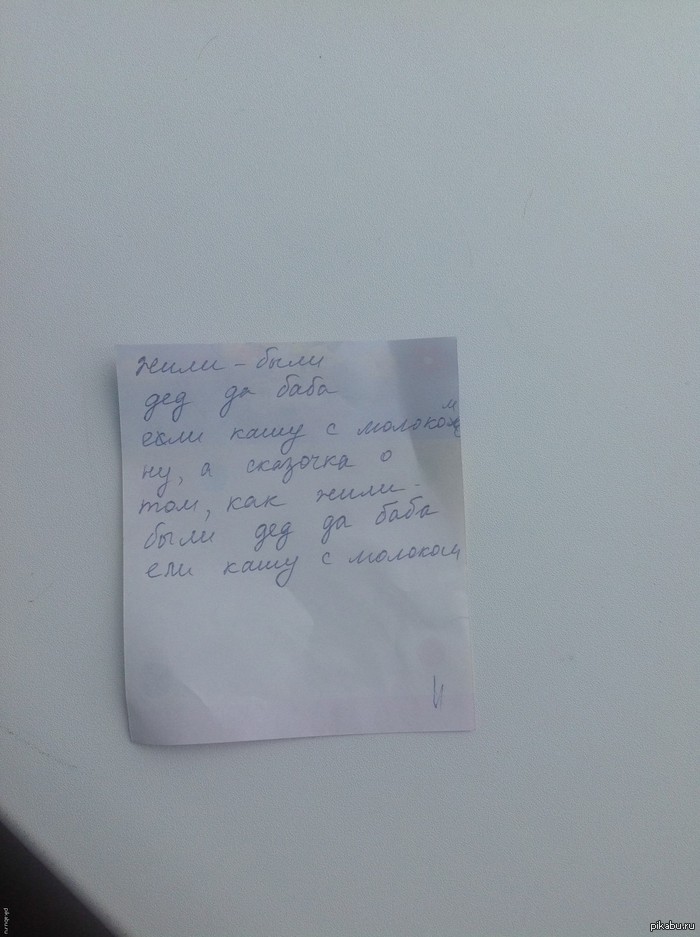 жили - были
дед да баба
если кашу с молоком
ну, а сказочка о
том, как жили -
были дед да баба
ели кашу с молоком
и
pikabu.ru
pikabu.ru